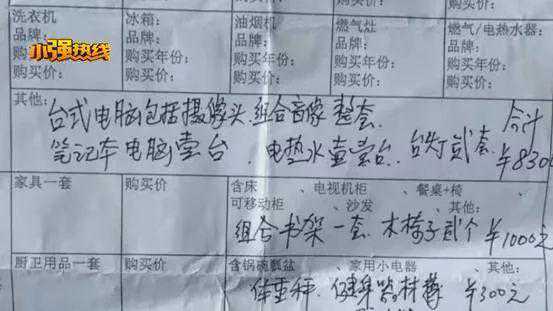 洗衣机 冰箱: 油烟机 燃气灶 燃气/电热水器:
品牌: 品牌: 品牌: 品牌: 品牌:
小强热线
购买年份: 购买年份: 购买年份: 购买年份:
购买价: 购买价: 购买价: 购买价: 购买价:
其他:
台式电脑包括摄像头.组合音像 整套. 合计
笔记本电脑壹台. 电热水壶壹台. 台灯贰套 ¥830
家具一套 购买价 含床 、电视机柜 、餐桌+椅 、
可移动柜 、沙发 、其他:
组合书架一套.木椅子贰个 ¥1000元
厨卫用品一套 购买价 含锅碗瓢盆 、家用小电器 、其他:
体重秤.健身器材 ¥300元